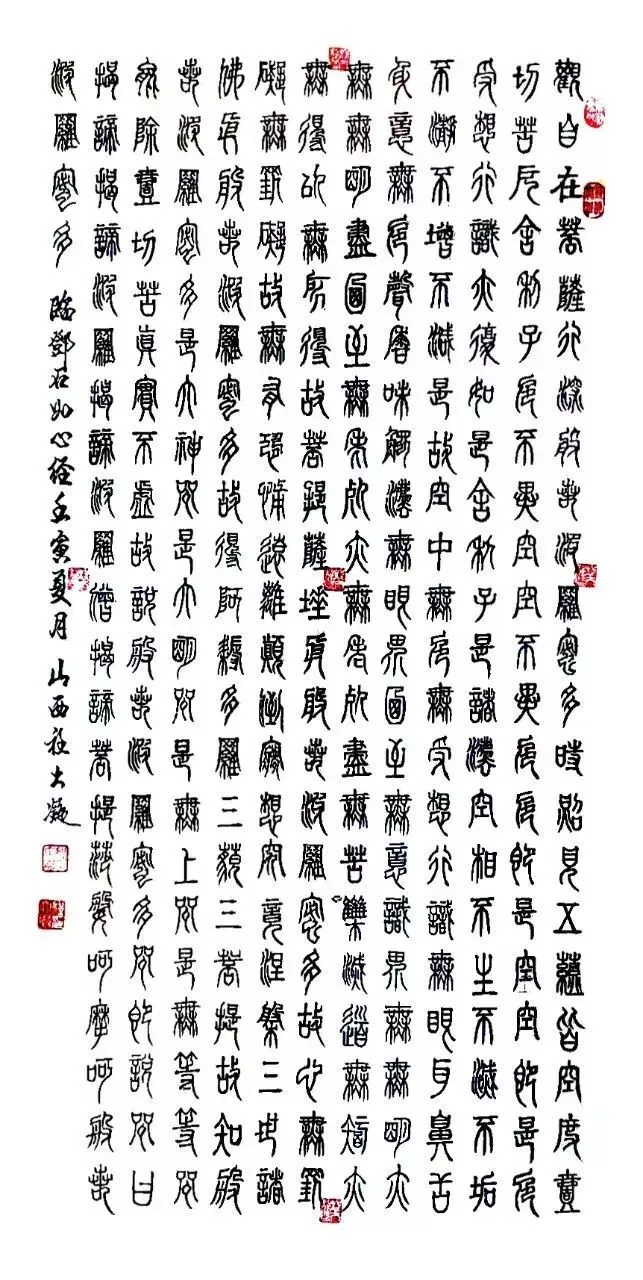 觀自在菩薩行深般若波羅蜜多時照見五蘊皆空度壹
切苦厄舍利子色不異空空不異色色即是空空即是色
受想行識亦復如是舍利子是諸法空相不生不滅不垢
不淨不增不減是故空中無色無受想行識無眼耳鼻舌
身意無色聲香味觸法無眼界乃至無意識界無無明亦
無無明盡乃至無老死亦無老死盡無苦集滅道無智亦
無得以無所得故菩提薩埵依般若波羅蜜多故心無罣
礙無罣礙故無有恐怖遠離顛倒夢想究竟涅槃三世諸
佛依般若波羅蜜多故得阿耨多羅三藐三菩提故知般
若波羅蜜多是大神咒是大明咒是無上咒是無等等咒
能除壹切苦真實不虛故說般若波羅蜜多咒即說咒曰
揭諦揭諦波羅揭諦波羅僧揭諦菩提莎婆呵摩呵般若
波羅蜜多
臨鄧石如心經壬寅夏月山西